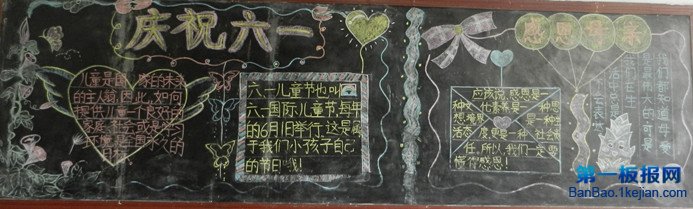 庆祝六一
儿童是国家的未来
的主人翁,因此,如何
提供儿童一个良好的
六一儿童节也叫
六一国际儿童节,每年
的6月1日举行,这是属
于我们小孩子自己
的节日哦!
感恩母亲
应该说,感恩是一
种文化素养是一种思
想境界
活态度更是一种社会责
任,所以,我们一定要
懂得感恩!
我们都知道母爱
是最伟大的可是
我们在生
活中
第一板报网
BanBao.1kejian.com